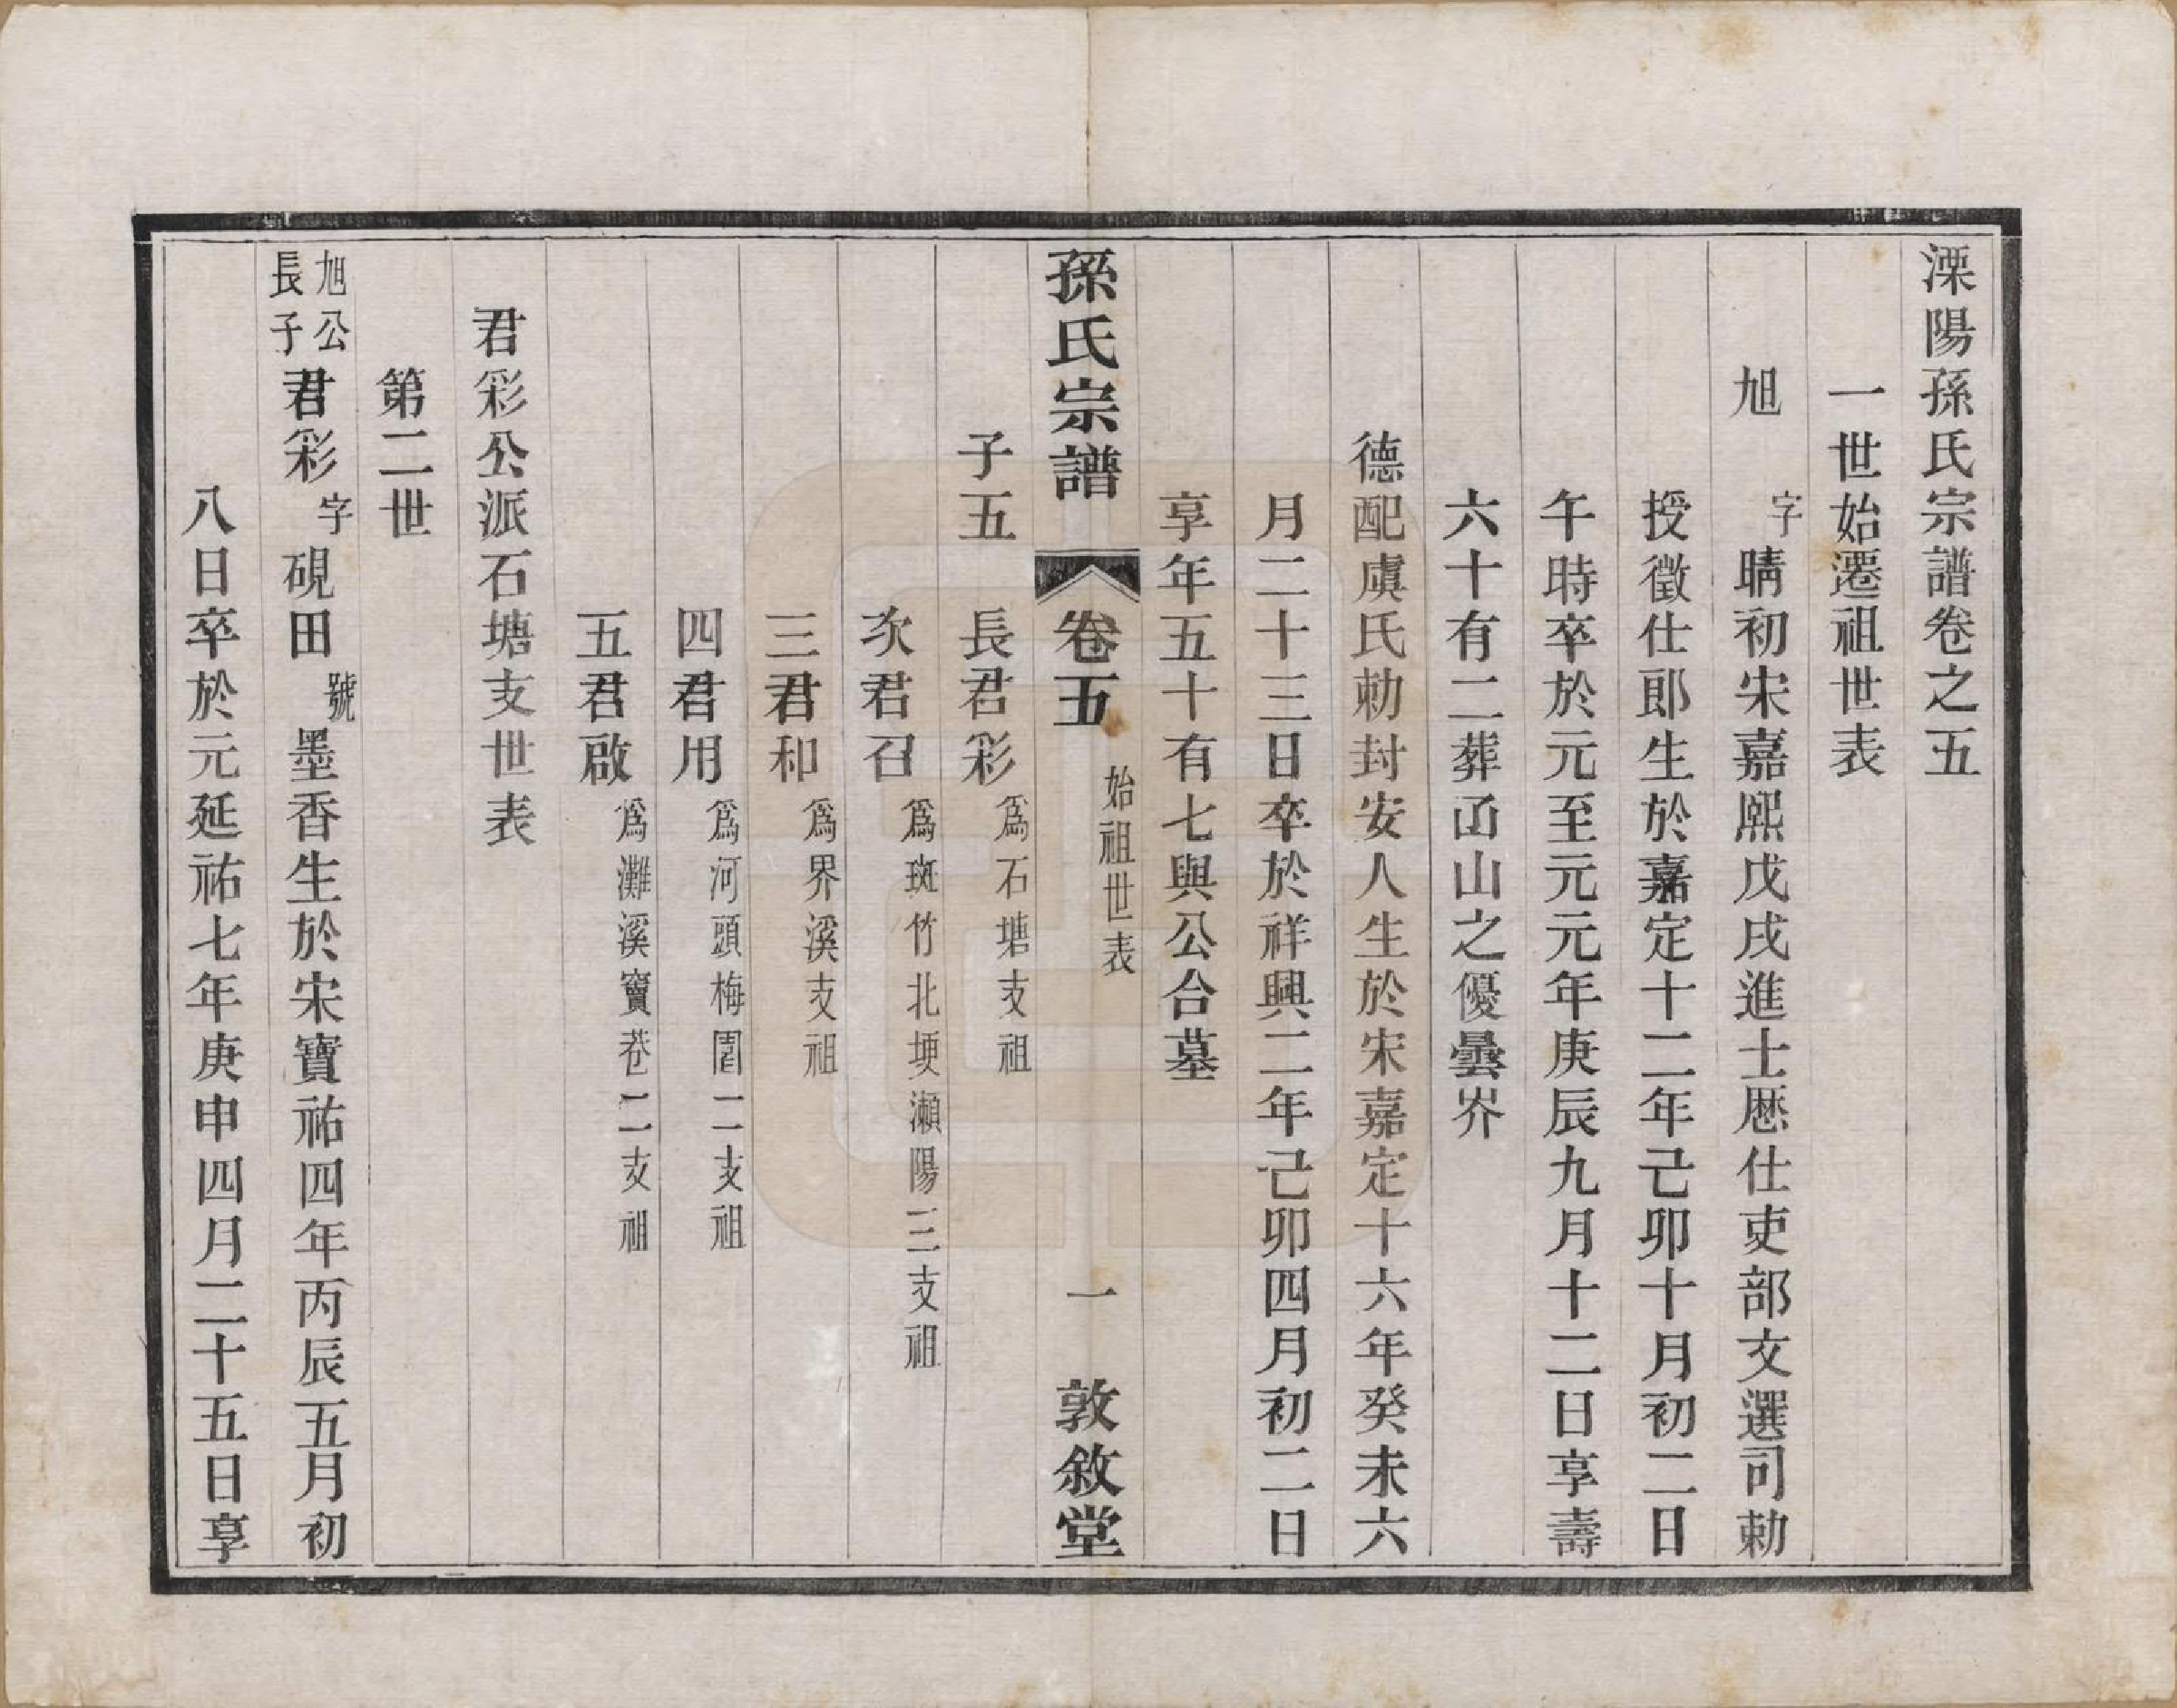 溧陽孫氏宗譜卷之五
一世始遷祖世表
旭 字晴初宋嘉熙戊戌進士歷仕吏部文選司勅
授徵仕郎生於嘉定十二年己卯十月初二日
午時卒於元至元元年庚辰九月十二日享壽
六十有二葬凾山之優曇岕
德配虞氏勅封安人生於宋嘉定十六年癸未六
月二十三日卒於祥興二年己卯四月初二日
享年五十有七與公合墓
孫氏宗譜 卷五 始祖世表 一 敦敘堂
子五 長君彩 爲石塘支祖
次君召 爲斑竹北埂瀨陽三支祖
三君和 爲界溪支祖
四君用 爲河頭梅園二支祖
五君啟 爲灘溪竇巷二支祖
君彩公派石塘支世表
第二世
旭公長子 君彩 字硯田 號墨香生於宋寶祐四年丙辰五月初
八日卒於元延祐七年庚申四月二十五日享